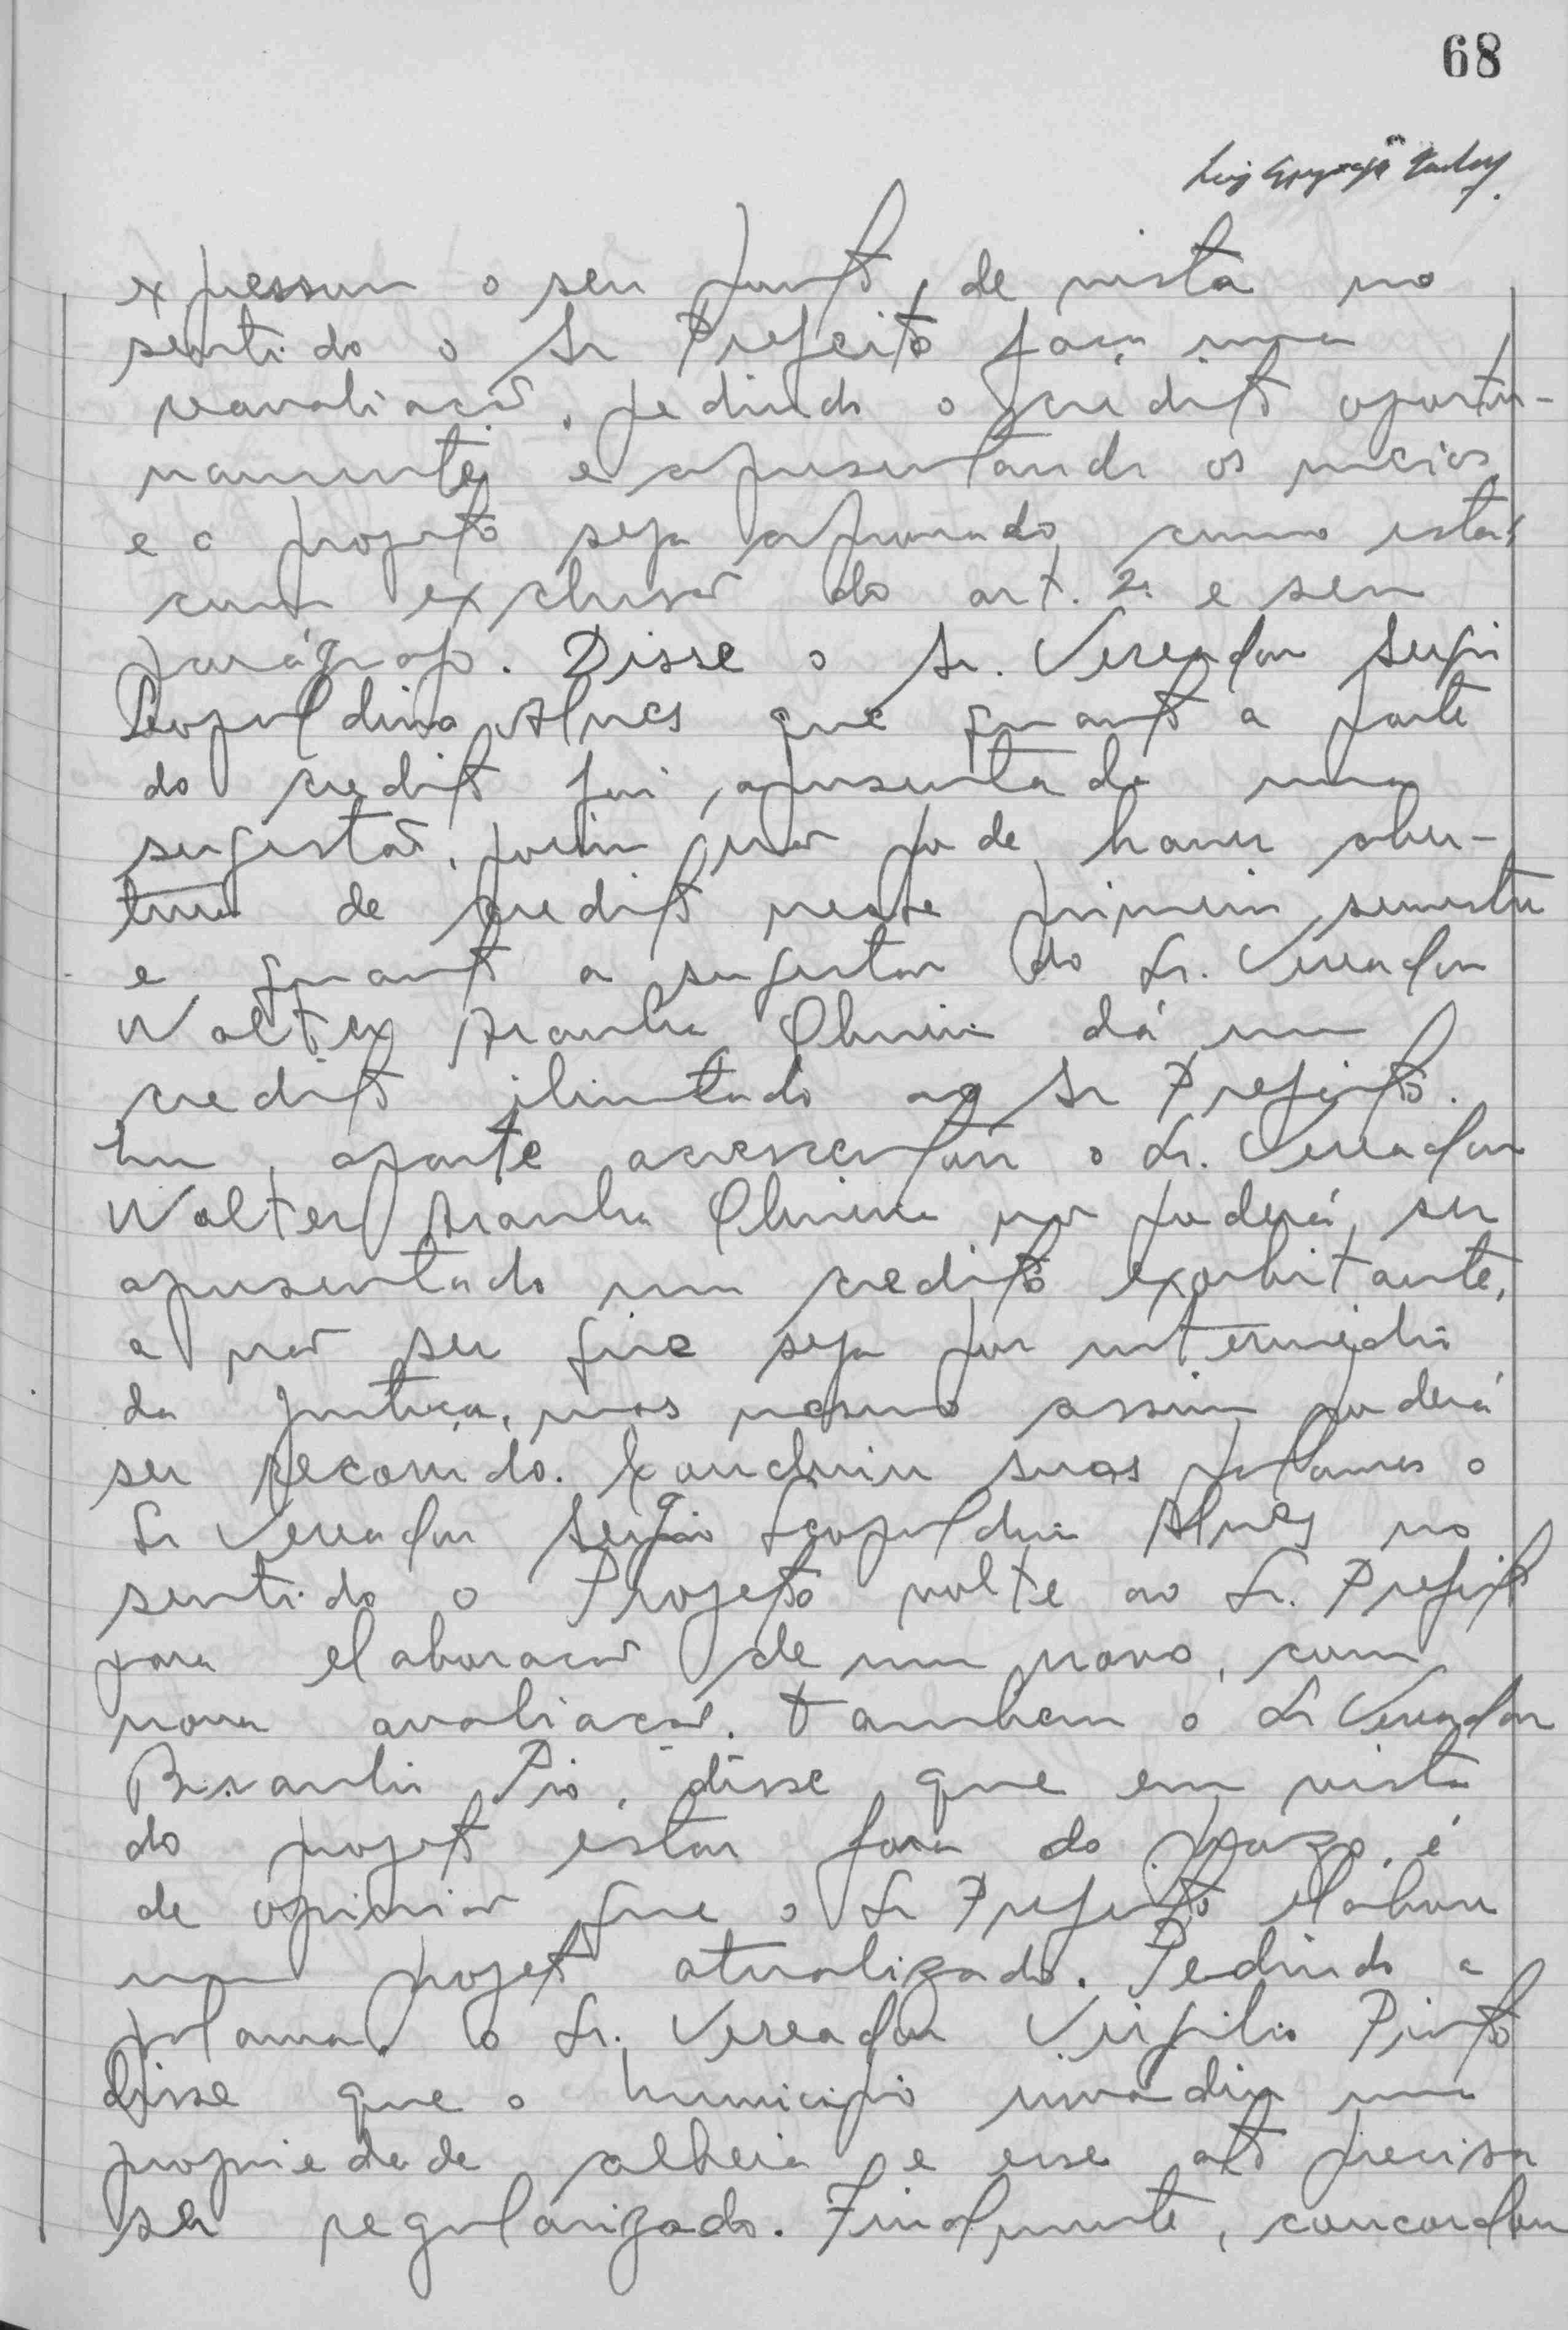 68
expressou o seu ponto de vista no
sentido o Sr Prefeito faça uma
reavaliação, pedindo o crédito oportu-
namente e apresentando os meios
e o projeto seja aprovado como está,
com exclusão do art. 2º e seu
parágrafo. Disse o Sr. Vereador Sergio
Leopoldino Alves que quanto a parte
do credito foi apresentada uma
sugestão, porém não pode haver aber-
tura de credito nesse primeiro semestre
e quanto a sugestão do Sr. Vereador
Walter Aranha Oliveira dá um
credito ilimitado ao Sr Prefeito.
Em aparte acrescentou o Sr. Vereador
Walter Aranha Oliveira não poderá ser
apresentado um credito exorbitante,
a não ser que seja por intermédio
da justiça, mas mesmo assim poderá
ser recorrido. Concluiu suas palavras o
Sr Vereador Sergio Leopoldino Alves no
sentido o Projeto volte ao Sr. Prefeito
para elaboração de um novo, com
nova avaliação. Tambem o Sr Vereador
Braulio Pio, disse que em vista
do projeto estar fora do prazo, é
de opinião que o Sr Prefeito elabore
um projeto atualizado. Pedindo a
palavra o Sr. Vereador Virgilio Pinto
disse que o municipio invadiu uma
propriedade alheia e esse ato precisa
ser regularizado. Finalmente, concordou